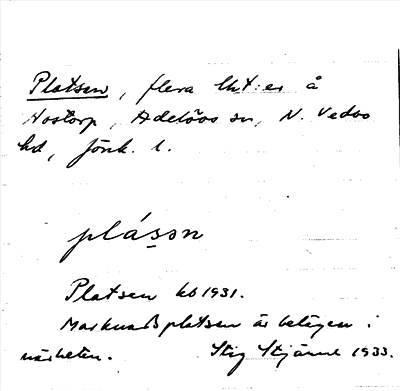 Platsen, flera lht:er å
Hostorp, Adelövs sn, N. Vedbo
hd, Jönk. l.
plássn
Platsen kb 1931.
Marknadsplatsen är belägen i
närheten. Stig Stjärne 1933.